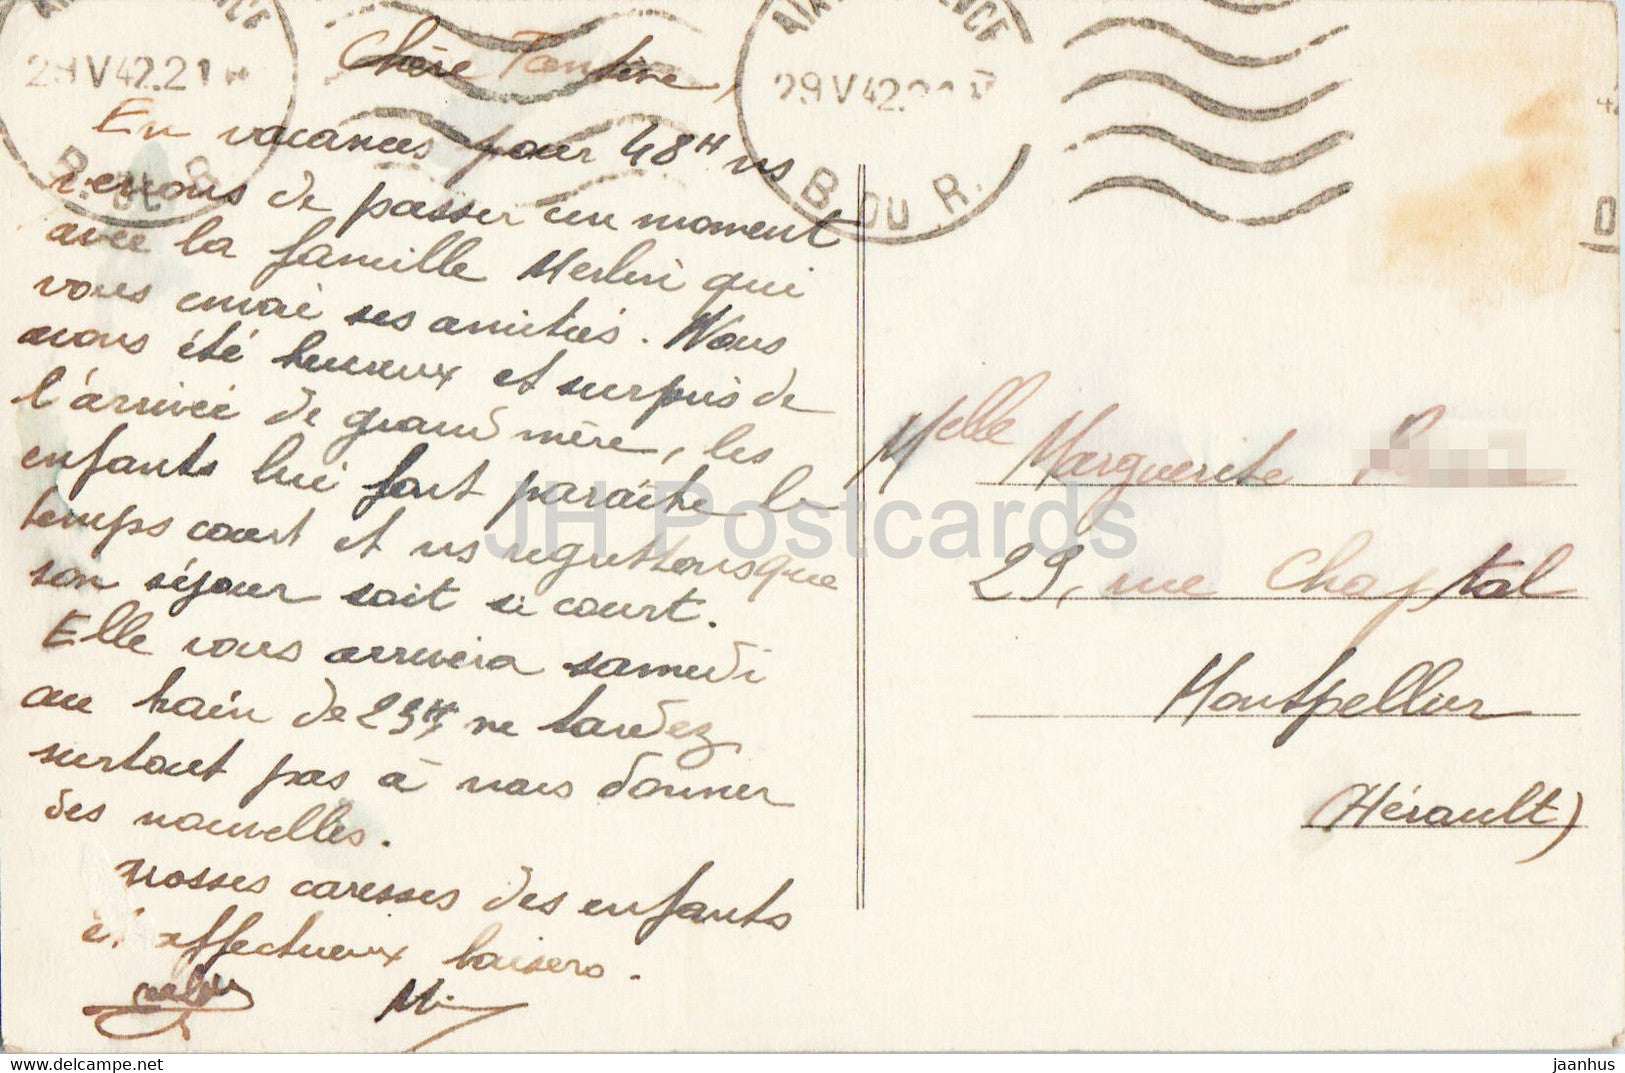 29 V 42.21
29 V 42
B. DU R.
B. DU R.
Chère Tantine,
En vacances pour 48H ns
venons de passer un moment
avec la famille Merlin qui
vous envoi ses amitiés. Nous
avons été heureux et surpris de
l'arrivée de grand mère, les
enfants lui font paraître le
temps court et ns regrettons que
son séjour soit si court.
Elle vous arrivera samedi
au train de 23H, ne tardez
surtout pas à nous donner
des nouvelles.
Grosses caresses des enfants
et affectueux baisers.
Melle Marguerite
29, rue Chaptal
Montpellier
(Hérault)
JH Postcards
the-world-collectors.net
jaanhus